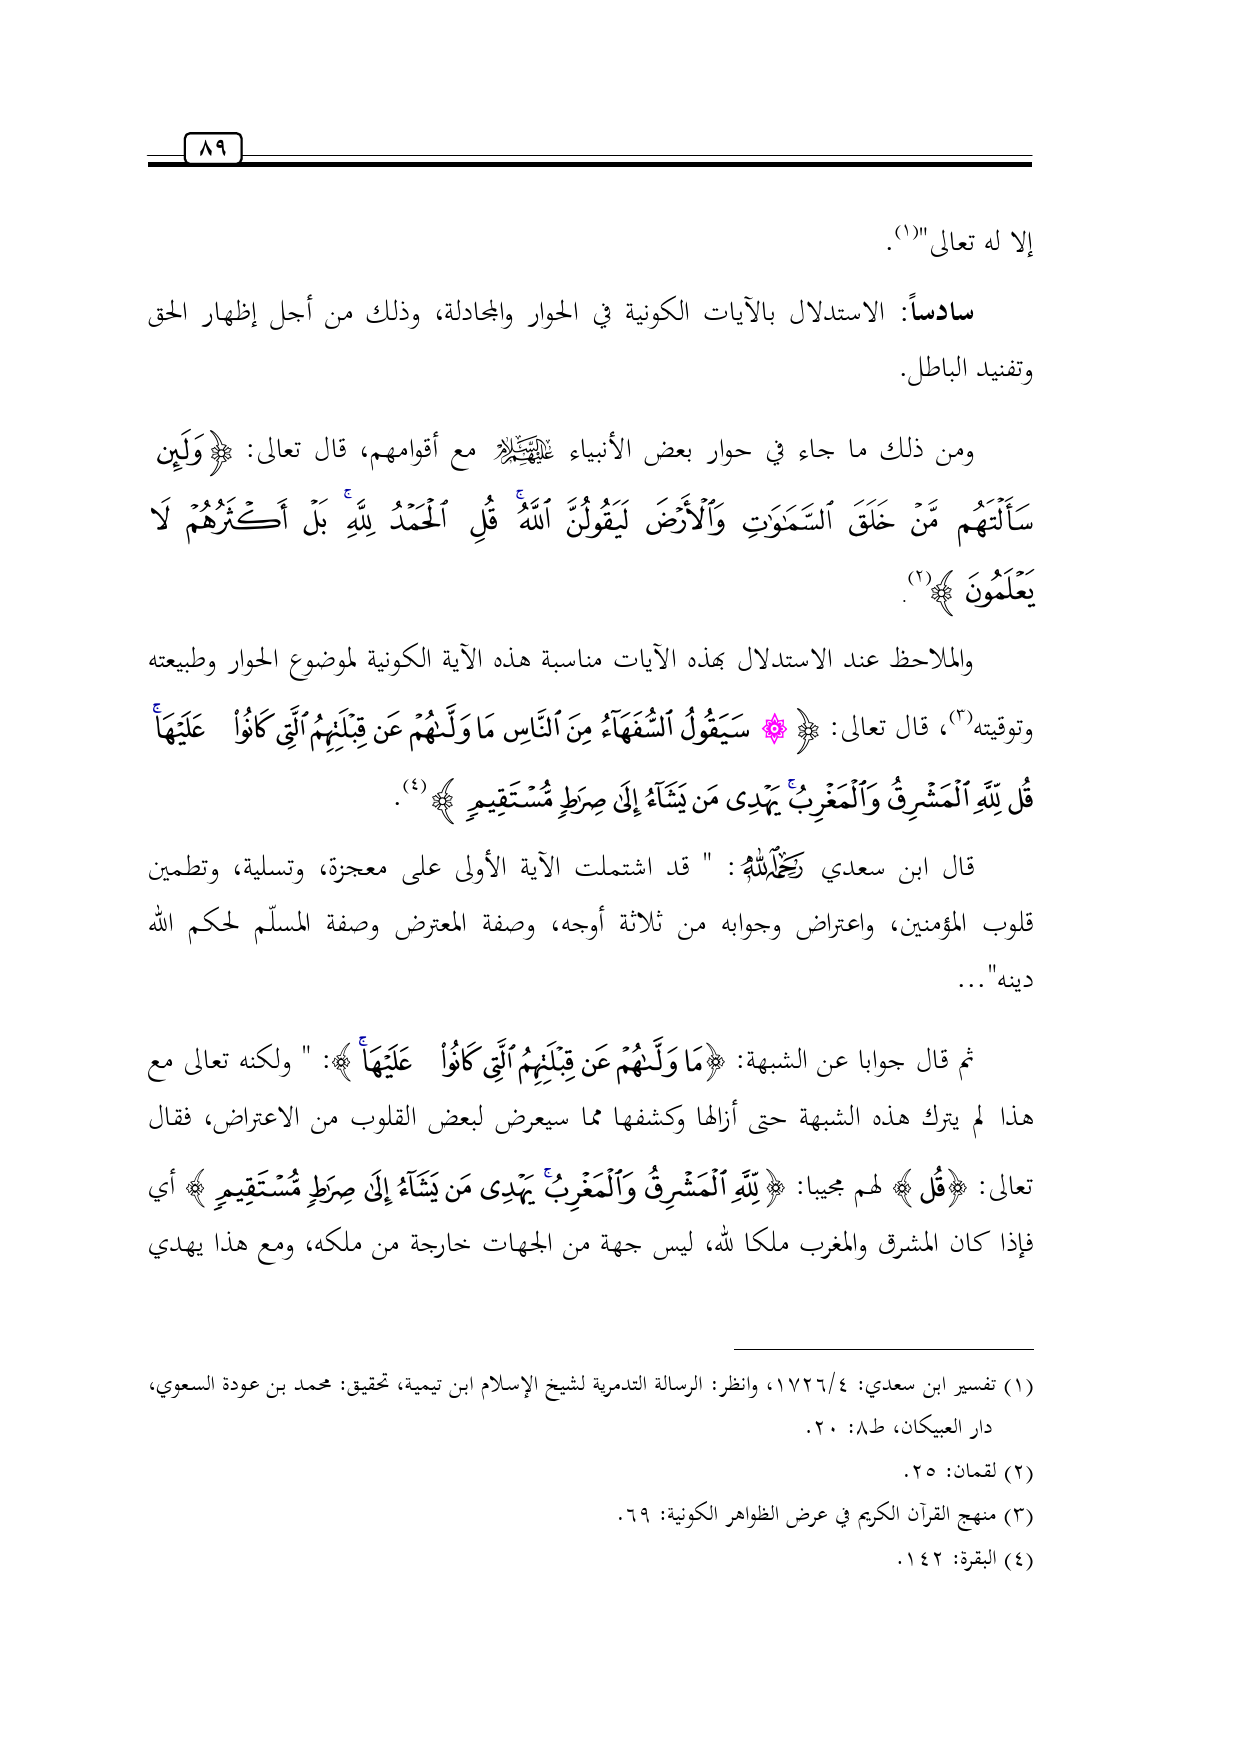 ٨٩
إلا له تعالى"(١).
سادساً: الاستدلال بالآيات الكونية في الحوار والمجادلة، وذلك من أجل إظهار الحق
وتفنيد الباطل.
ومن ذلك ما جاء في حوار بعض الأنبياء عليهم السلام مع أقوامهم، قال تعالى: ﴿وَلَئِن
سَأَلْتَهُم مَّنْ خَلَقَ ٱلسَّمَـٰوَٰتِ وَٱلْأَرْضَ لَيَقُولُنَّ ٱللَّهُ ۚ قُلِ ٱلْحَمْدُ لِلَّهِ ۚ بَلْ أَكْثَرُهُمْ لَا
يَعْلَمُونَ ﴾(٢).
والملاحظ عند الاستدلال بهذه الآيات مناسبة هذه الآية الكونية لموضوع الحوار وطبيعته
وتوقيته(٣)، قال تعالى: ﴿ ۞ سَيَقُولُ ٱلسُّفَهَآءُ مِنَ ٱلنَّاسِ مَا وَلَّىٰهُمْ عَن قِبْلَتِهِمُ ٱلَّتِى كَانُوا۟ عَلَيْهَا ۚ
قُل لِّلَّهِ ٱلْمَشْرِقُ وَٱلْمَغْرِبُ ۚ يَهْدِى مَن يَشَآءُ إِلَىٰ صِرَٰطٍ مُّسْتَقِيمٍ ﴾(٤).
قال ابن سعدي رحمه الله: " قد اشتملت الآية الأولى على معجزة، وتسلية، وتطمين
قلوب المؤمنين، واعتراض وجوابه من ثلاثة أوجه، وصفة المعترض وصفة المسلّم لحكم الله
دينه"...
ثم قال جوابا عن الشبهة: ﴿مَا وَلَّىٰهُمْ عَن قِبْلَتِهِمُ ٱلَّتِى كَانُوا۟ عَلَيْهَا ۚ ﴾: " ولكنه تعالى مع
هذا لم يترك هذه الشبهة حتى أزالها وكشفها مما سيعرض لبعض القلوب من الاعتراض، فقال
تعالى: ﴿قُل ﴾ لهم مجيبا: ﴿لِّلَّهِ ٱلْمَشْرِقُ وَٱلْمَغْرِبُ ۚ يَهْدِى مَن يَشَآءُ إِلَىٰ صِرَٰطٍ مُّسْتَقِيمٍ ﴾ أي
فإذا كان المشرق والمغرب ملكا لله، ليس جهة من الجهات خارجة من ملكه، ومع هذا يهدي
(١) تفسير ابن سعدي: ١٧٢٦/٤، وانظر: الرسالة التدمرية لشيخ الإسلام ابن تيمية، تحقيق: محمد بن عودة السعوي،
دار العبيكان، ط٨: ٢٠.
(٢) لقمان: ٢٥.
(٣) منهج القرآن الكريم في عرض الظواهر الكونية: ٦٩.
(٤) البقرة: ١٤٢.